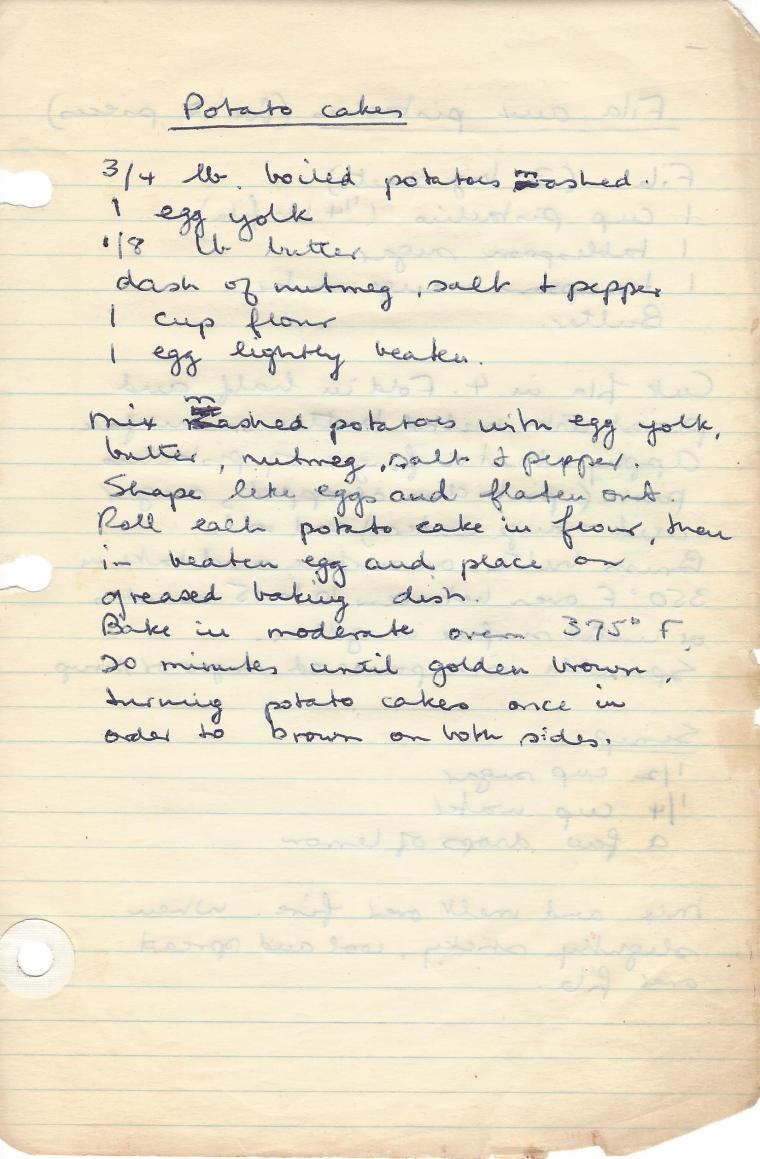 Potato cakes
3/4 lb. boiled potatoes mashed.
1 egg yolk
1/8 lb butter
dash of nutmeg, salt + pepper
1 cup flour
1 egg lightly beaten.
Mix mashed potatoes with egg yolk,
butter, nutmeg, salt + pepper.
Shape like eggs and flaten out.
Roll each potato cake in flour, then
in beaten egg and place on
greased baking dish.
Bake in moderate oven 375° F
20 minutes until golden brown,
turning potato cakes once in
order to brown on both sides.